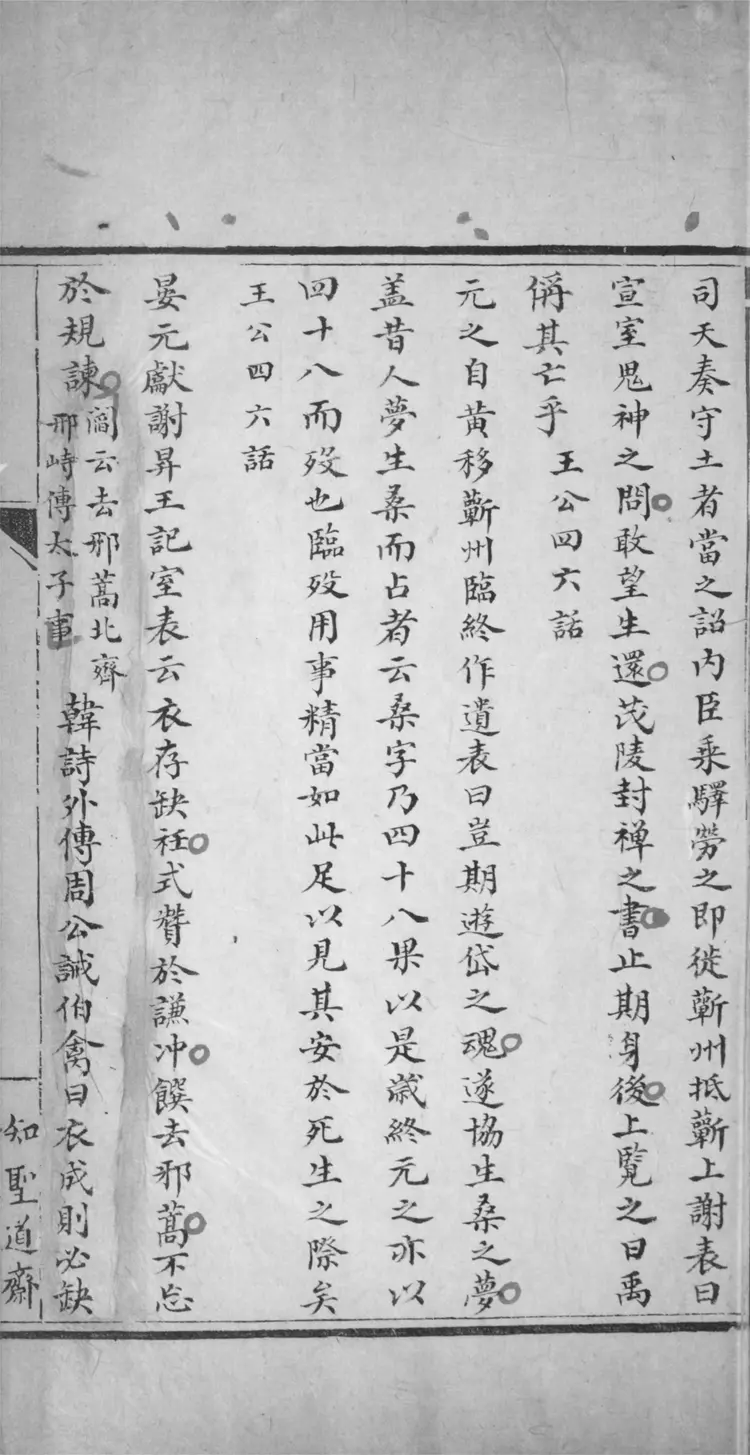 司天奏守土者當之詔内臣乘驛勞之即徙蘄州抵蘄上謝表曰
宣室鬼神之問敢望生還茂陵封禅之書止期身後上覧之曰禹
偁其亡乎 王公四六話
元之自黄移蘄州臨終作遺表曰豈期遊岱之魂遂協生桑之夢
盖昔人夢生桑而占者云桑字乃四十八果以是歳終元之亦以
四十八而殁也臨殁用事精當如此足以見其安於死生之際矣
王公四六話
晏元獻謝昇王記室表云衣存缺衽式賛於謙冲饌去邪蒿不忘
於規諫
閻云去邪蒿北齊
邢峙傳太子事
韓詩外傳周公誡伯禽曰衣成則必缺
知聖道齋